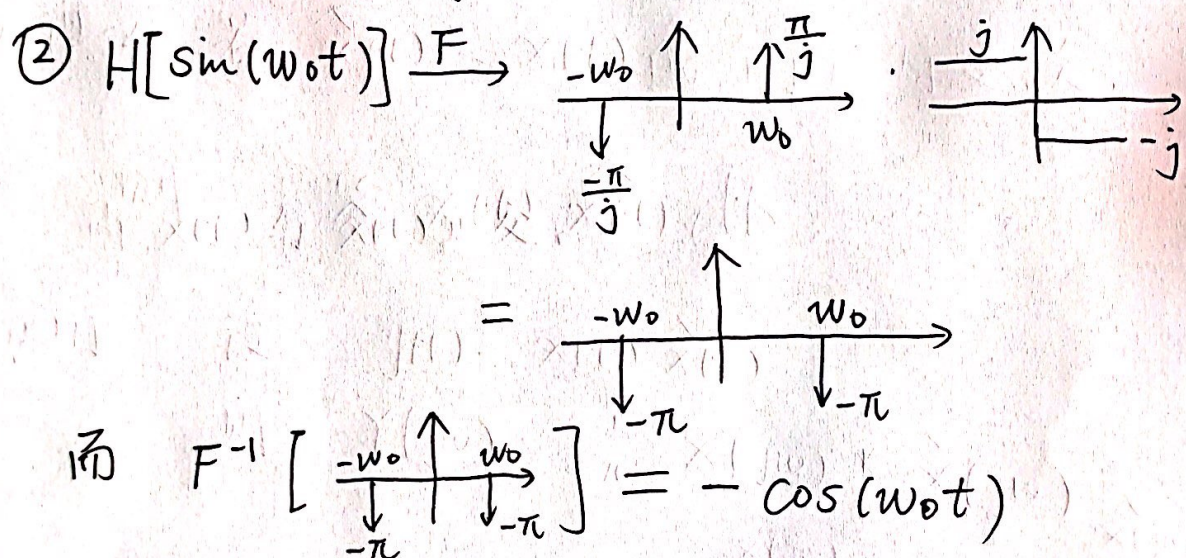 ② H[sin(w₀t)] F→ -w₀ w₀ π/j -π/j · j -j
= -w₀ w₀ -π -π
而 F⁻¹[ -w₀ w₀ -π -π ] = - cos(w₀t)